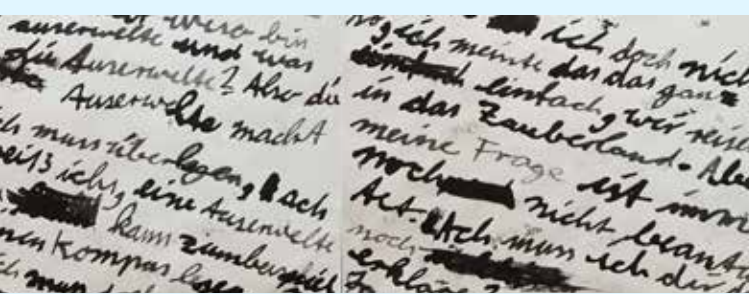 bin
auserwelte und was
die Auserwelte? Also die
Auserwelte macht
ch muss überlegen, ach
eiß ichs, eine Auserwelte
kann zumbeispiel
nen Kompas
ch muss
ich doch nich
ich meinte das das ganz
einfach, wir reise
in das Zauberland. Abe
meine Frage ist imme
noch nicht beantw
tet. Ach muss ich dir d
noch